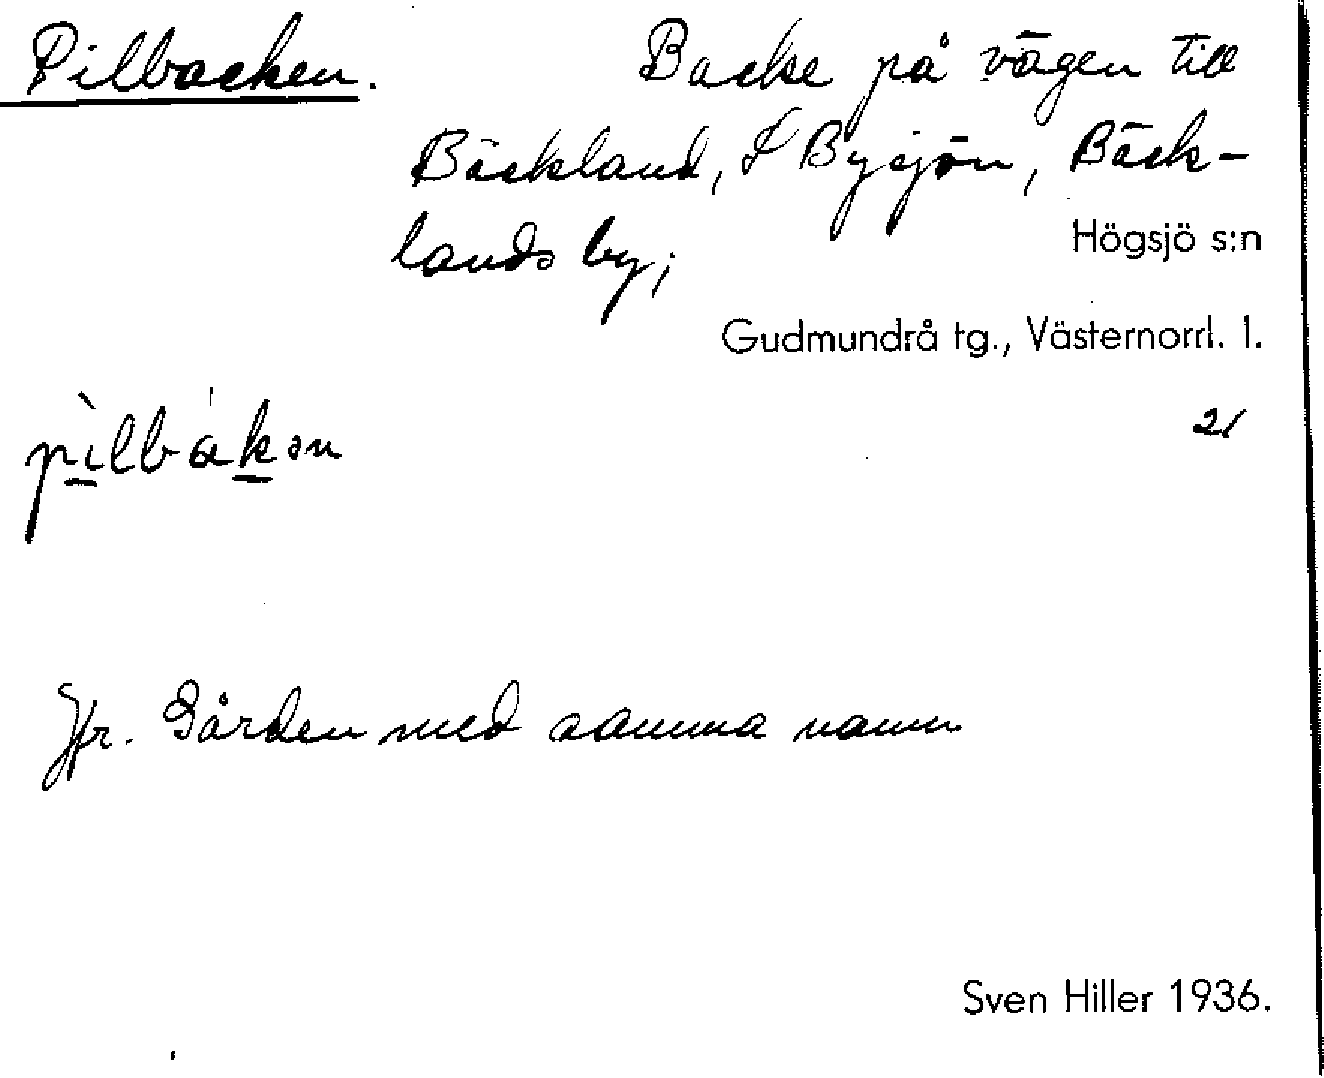 Pilbacken. Backe på vägen till
Bäckland, S Bysjön, Bäck-
lands by;
Högsjö s:n
Gudmundrå tg., Västernorrl. l.
21
pìlbákən
Jfr. Gården med samma namn
Sven Hiller 1936.